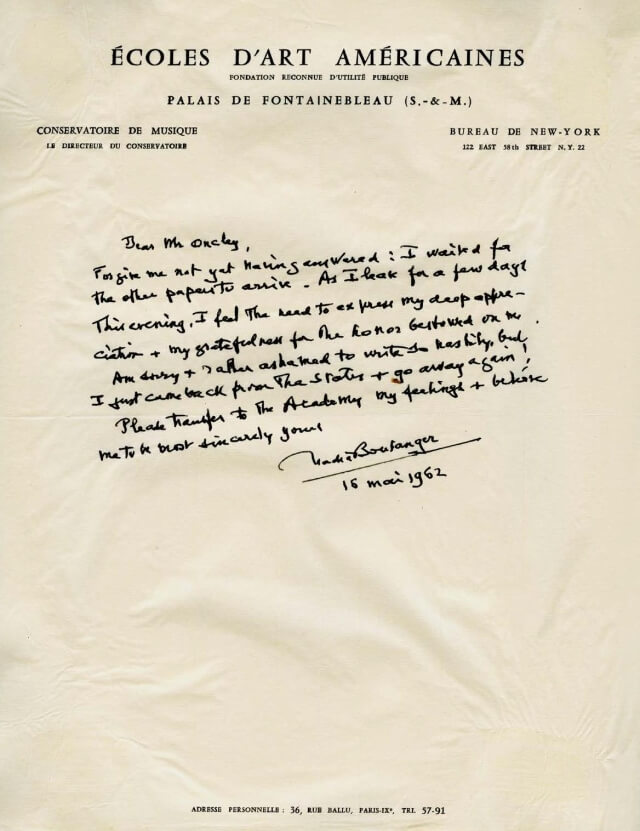 ÉCOLES D'ART AMÉRICAINES
FONDATION RECONNUE D'UTILITÉ PUBLIQUE
PALAIS DE FONTAINEBLEAU (S.-&-M.)
CONSERVATOIRE DE MUSIQUE
LE DIRECTEUR DU CONSERVATOIRE
BUREAU DE NEW-YORK
122 EAST 58th STREET N.Y. 22
Dear Mr Oncley,
Forgive me not yet having answered : I waited for
the other papers to arrive - As I leave for a few days
this evening, I feel the need to express my deep appre-
ciation + my gratefulness for the honor bestowed on me.
Am sorry + rather ashamed to write so hastily, but
I just came back from the States + go away again!
Please transfer to the Academy my feelings + believe
me to be most sincerely yours
Nadia Boulanger
15 mai 1962
ADRESSE PERSONNELLE : 36, RUE BALLU, PARIS-IXe, TRI. 57-91